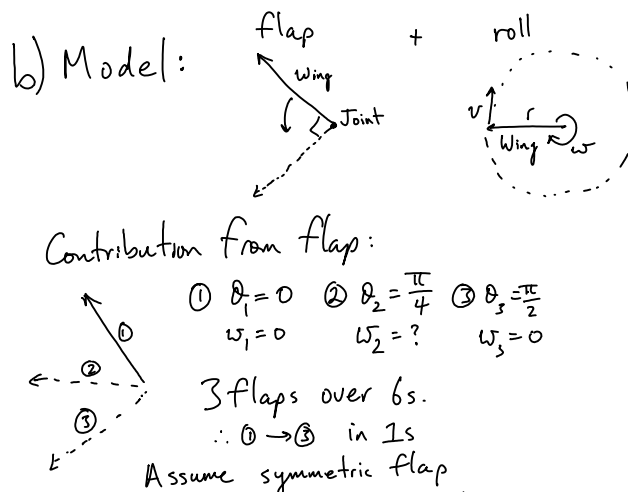 b) Model: flap + roll
Wing
Joint
v r
Wing ω
Contribution from flap:
① θ₁=0 ② θ₂=π/4 ③ θ₃=π/2
ω₁=0 ω₂=? ω₃=0
①
②
③
3 flaps over 6s.
∴ ①→③ in 1s
Assume symmetric flap